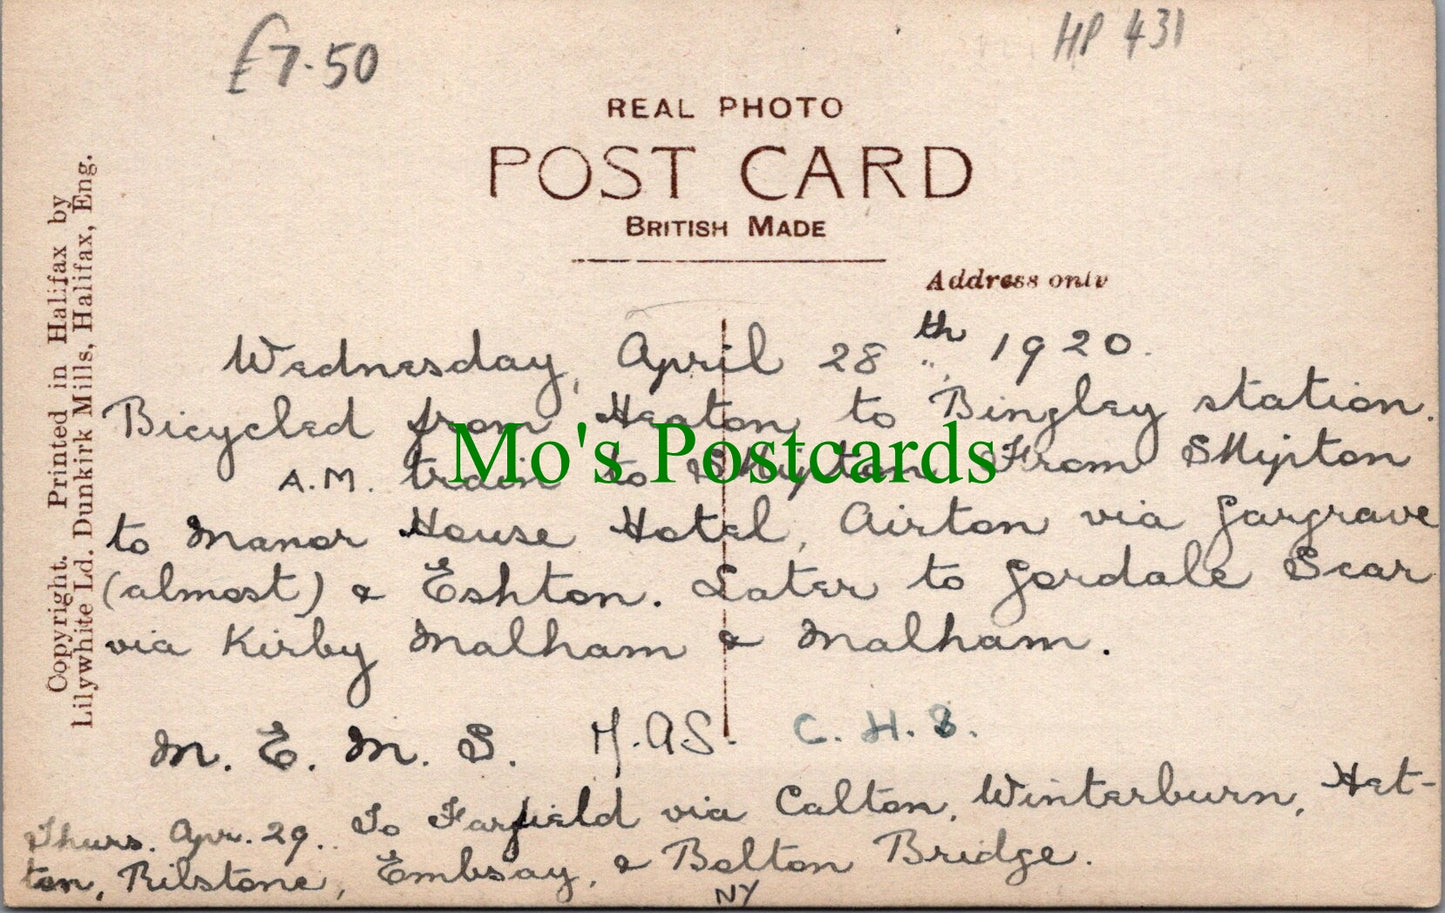 £7.50
HP 431
REAL PHOTO
POST CARD
BRITISH MADE
Address only
Copyright. Printed in Halifax by
Lilywhite Ld. Dunkirk Mills, Halifax, Eng.
Wednesday, April 28th 1920.
Bicycled from Heaton to Bingley station.
A.M. train to Skipton. From Skipton
to Manor House Hotel, Airton via Gargrave
(almost) & Eshton. Later to Gordale Scar
via Kirby Malham & Malham.
M. E. M. S. M.A.S. C. H. S.
Thurs. Apr. 29. To Farfield via Calton, Winterburn, Het-
ton, Rilstone, Embsay, & Bolton Bridge.
NY
Mo's Postcards